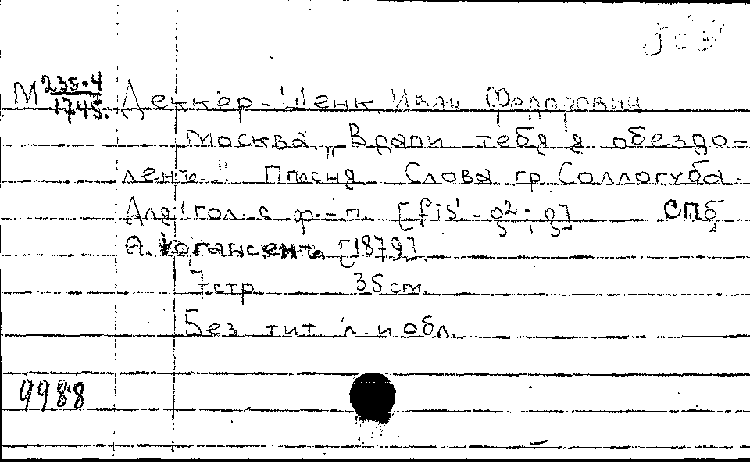 М 235-4
1745.
Деккер-Шенк, Иван Федорович
Москва, „Вдали тебя я обездо=
ленъ..." Пѣсня Слова гр. Соллогуба.
Для гол. с ф.-п. [fis¹-g²; g] СПб
А. Иогансенъ [1879]
7 стр 35 см.
Без тит л и обл.
9988